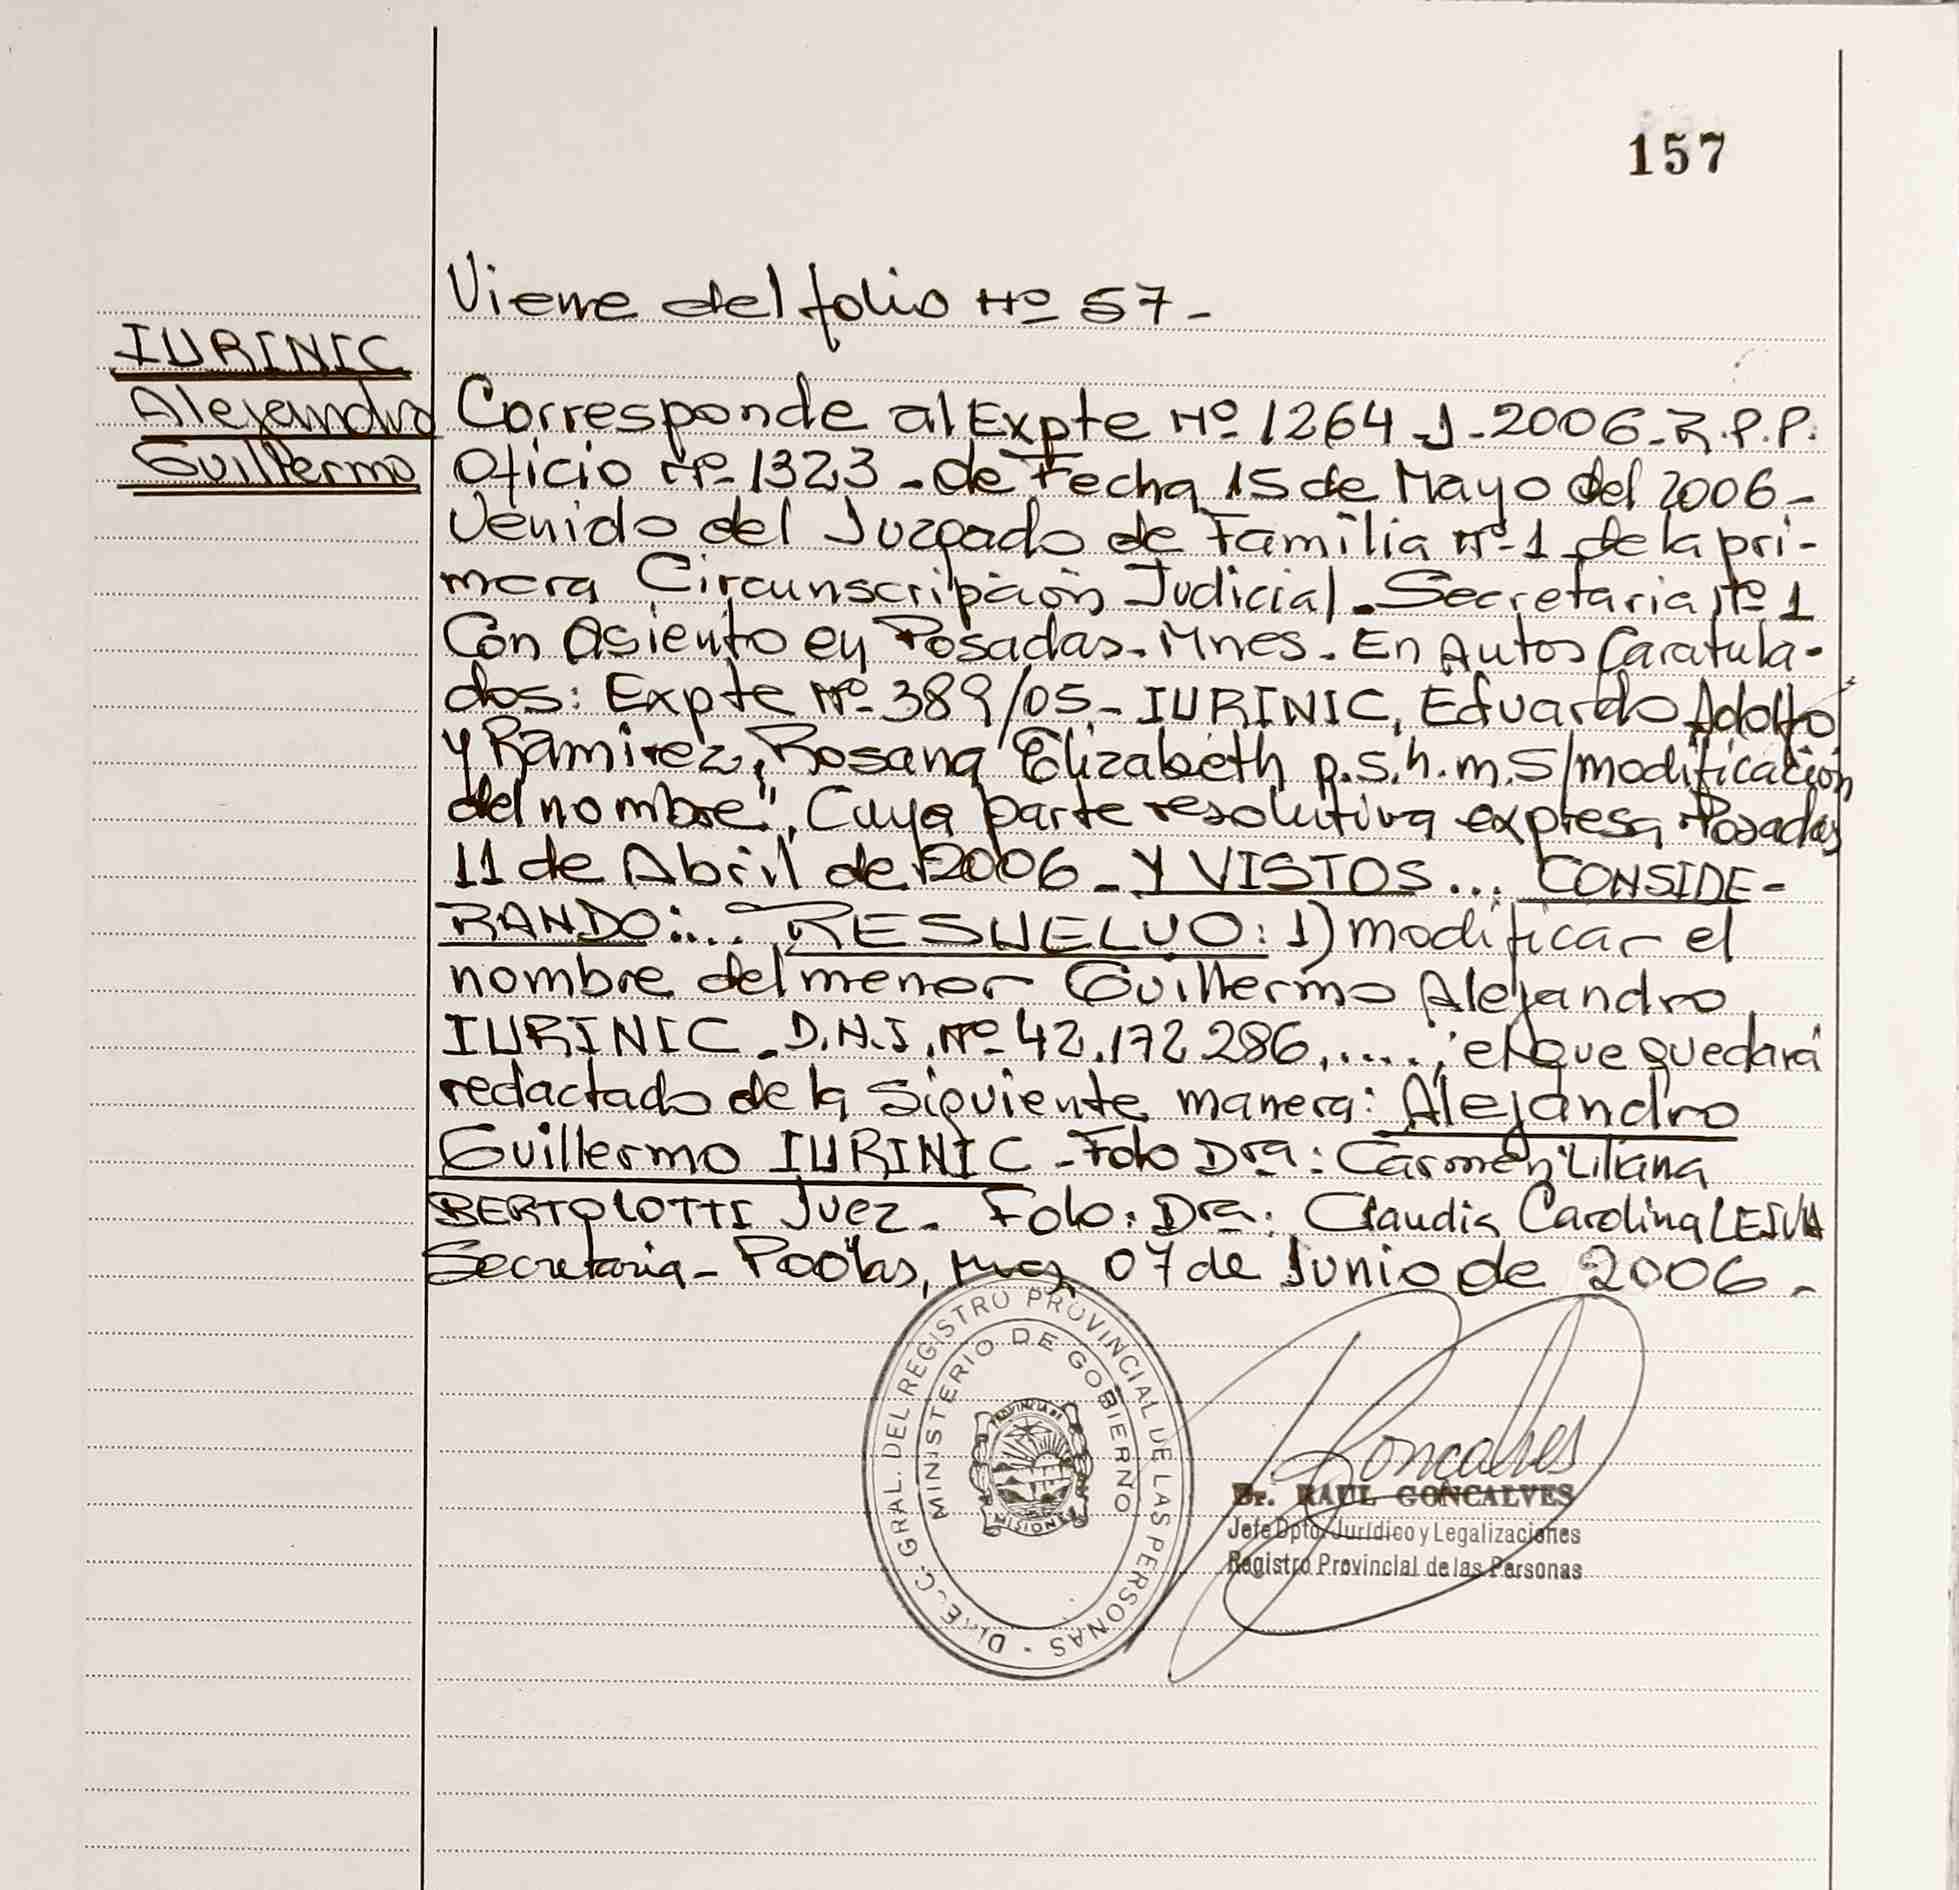 157
Viene del folio Nº 57-
IURINIC
Alejandro
Guillermo
Corresponde al Expte Nº 1264-J-2006-R.P.P.
Oficio Nº 1323-de Fecha 15 de Mayo del 2006-
Venido del Juzgado de Familia Nº-1 de la pri-
mera Circunscripción Judicial. Secretaria Nº 1
Con Asiento en Posadas-Mnes. En Autos Caratula-
dos: Expte Nº 389/05.- IURINIC, Eduardo Adolfo
y Ramirez, Rosana Elizabeth p.s.h.m. S/modificación
del nombre", Cuya parte resolutiva expresa Posadas
11 de Abril de 2006-Y VISTOS... CONSIDE-
RANDO:... RESUELVO: 1) modificar el
nombre del menor Guillermo Alejandro
IURINIC. D.N.I. Nº 42.172 286,.....; el que quedará
redactado de la siguiente manera: Alejandro
Guillermo IURINIC-Fdo Dra: Carmen Liliana
BERTOLOTTI Juez- Fdo: Dra: Claudia Carolina LEIVA
Secretaria- Posdas, Mnes, 07 de Junio de 2006-
DIRECC. GRAL. DEL REGISTRO PROVINCIAL DE LAS PERSONAS
MINISTERIO DE GOBIERNO
PROVINCIA DE
MISIONES
Goncalves
Dr. RAUL GONCALVES
Jefe Dpto. Jurídico y Legalizaciones
Registro Provincial de las Personas